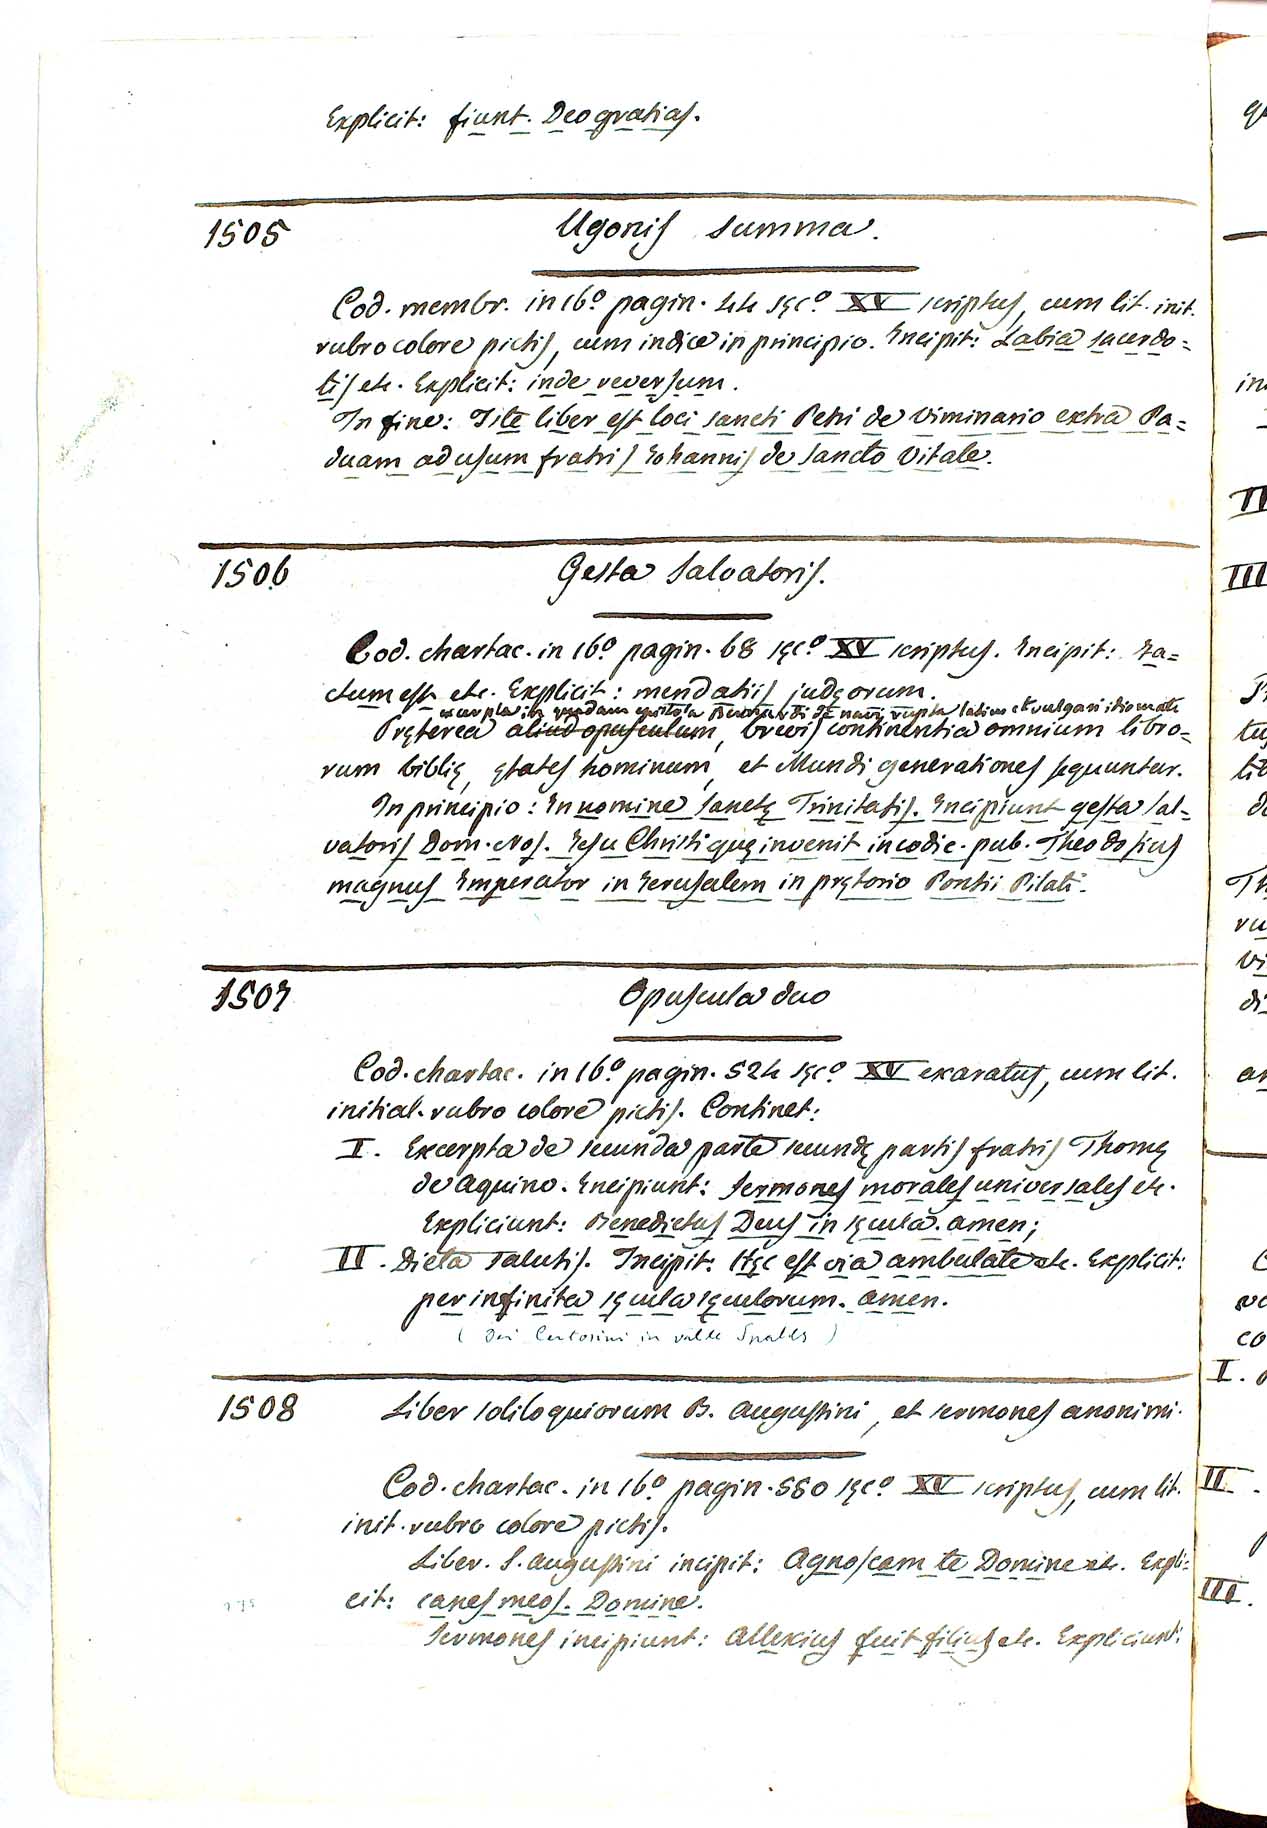 Explicit: fiunt. Deo gratias.
1505 Ugonis summa.
Cod. membr. in 16º pagin. 44 sęcº XV scriptus, cum lit. init.
rubro colore pictis, cum indice in principio. Incipit: Labia sacerdo=
tis etc. Explicit: inde reversum.
In fine: Iste liber est loci sancti Petri de Viminario extra Pa=
duam ad usum fratris Iohannis de sancto Vitale.
1506 Gesta Salvatoris.
Cod. chartac. in 16º pagin. 68 sęcº XV scriptus. Incipit: Fa=
ctum est etc. Explicit: mendatiis judęorum.
excerpta in quadam epistola Bernardi de navi rupta latino et vulgari idiomate
Pręterea aliud opusculum, brevis continentia omnium libro=
rum biblię, ętates hominum, et Mundi generationes sequuntur.
In principio: In nomine Sanctę Trinitatis. Incipiunt gesta Sal=
vatoris Dom. Nos. Iesu Christi quę invenit in codic. pub. Theodosius
magnus Imperator in Ierusalem in prętorio Pontii Pilati.
1507 Opuscula duo
Cod. chartac. in 16º pagin. 524 sęcº XV exaratus, cum lit.
initial. rubro colore pictis. Continet:
I. Excerpta de secunda parte secundę partis fratris Thomę
de Aquino. Incipiunt: Sermones morales universales etc.
Expliciunt: Benedictus Deus in sęcula. amen;
II. Dieta salutis. Incipit: Hęc est via ambulate etc. Explicit:
per infinita sęcula sęculorum. amen.
( Dei Certosini in valle )
1508 Liber soliloquiorum B. Augustini, et sermones anonimi.
Cod. chartac. in 16º pagin. 580 sęcº XV scriptus, cum lit.
init. rubro colore pictis.
Liber. S. Augustini incipit: Agnoscam te Domine etc. Expli=
cit: canes meos. Domine.
Sermones incipiunt: Allexius fuit filius etc. Expliciunt: